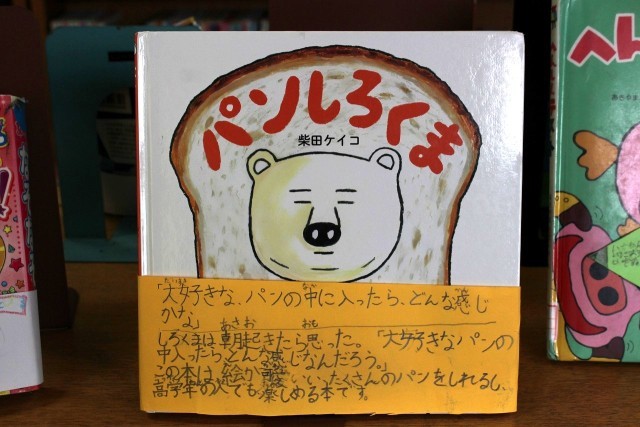 パンしろくま
柴田ケイコ
「大好きな、パンの中に入ったら、どんな感じ
かな」
しろくまは朝起きたら思った。「大好きなパンの
中入ったら、どんな感じなんだろう。」
この本は、絵がいい、たくさんのパンをしれるし、
高学年の人でも楽しめる本です。
へん